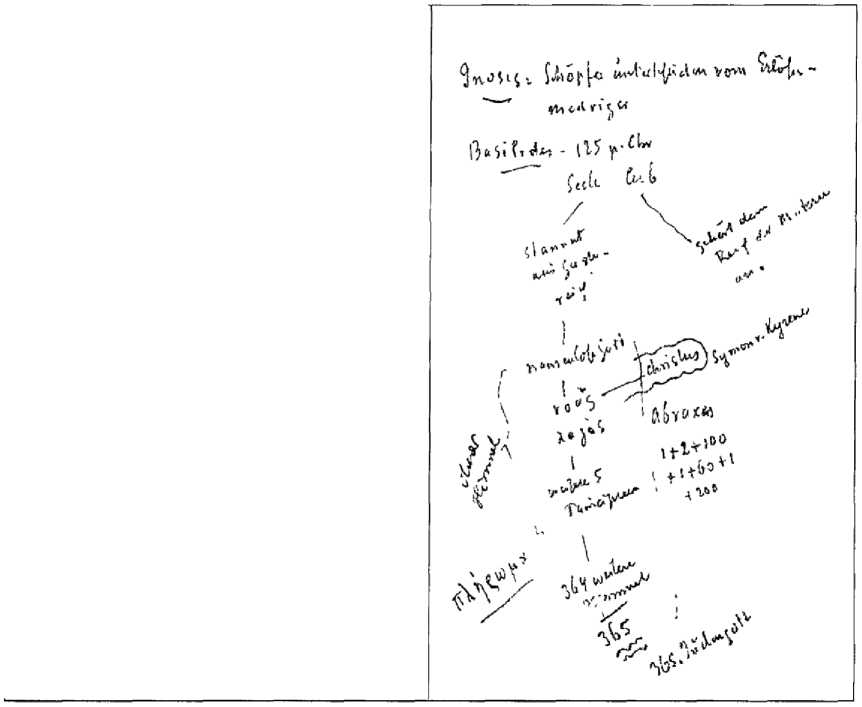 Gnosis = Schöpfer unterschieden vom Erlöser -
niedriger
Basilides - 125 p. Chr
Seele Leib
stammt
aus
gehört dem
Reich der Materie
an.
namenloser Gott
νοῦς
λογος
Christus
Symon v. Kyrene
abraxas
1+2+100
+1+60+1
+200
oberer
Himmel
weitere 5
πλήρωμα
364 weitere
Himmel
365
365. Judengott